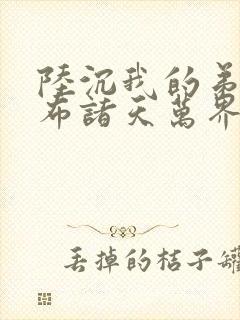 陸沉我的弟
布諸天萬界
丢掉的桔子罐